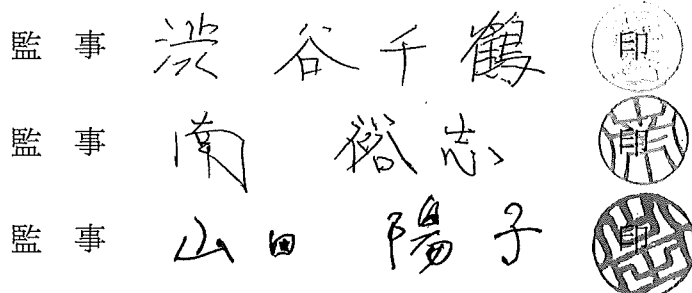 監事 渋谷千鶴 印
監事 南 裕志 印
監事 山田 陽子 印